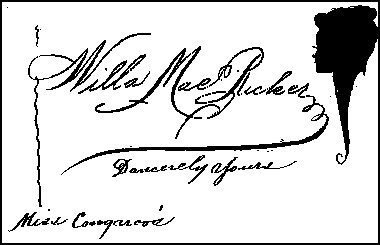 Willa Mae Ricker
Dancerely Yours
Miss